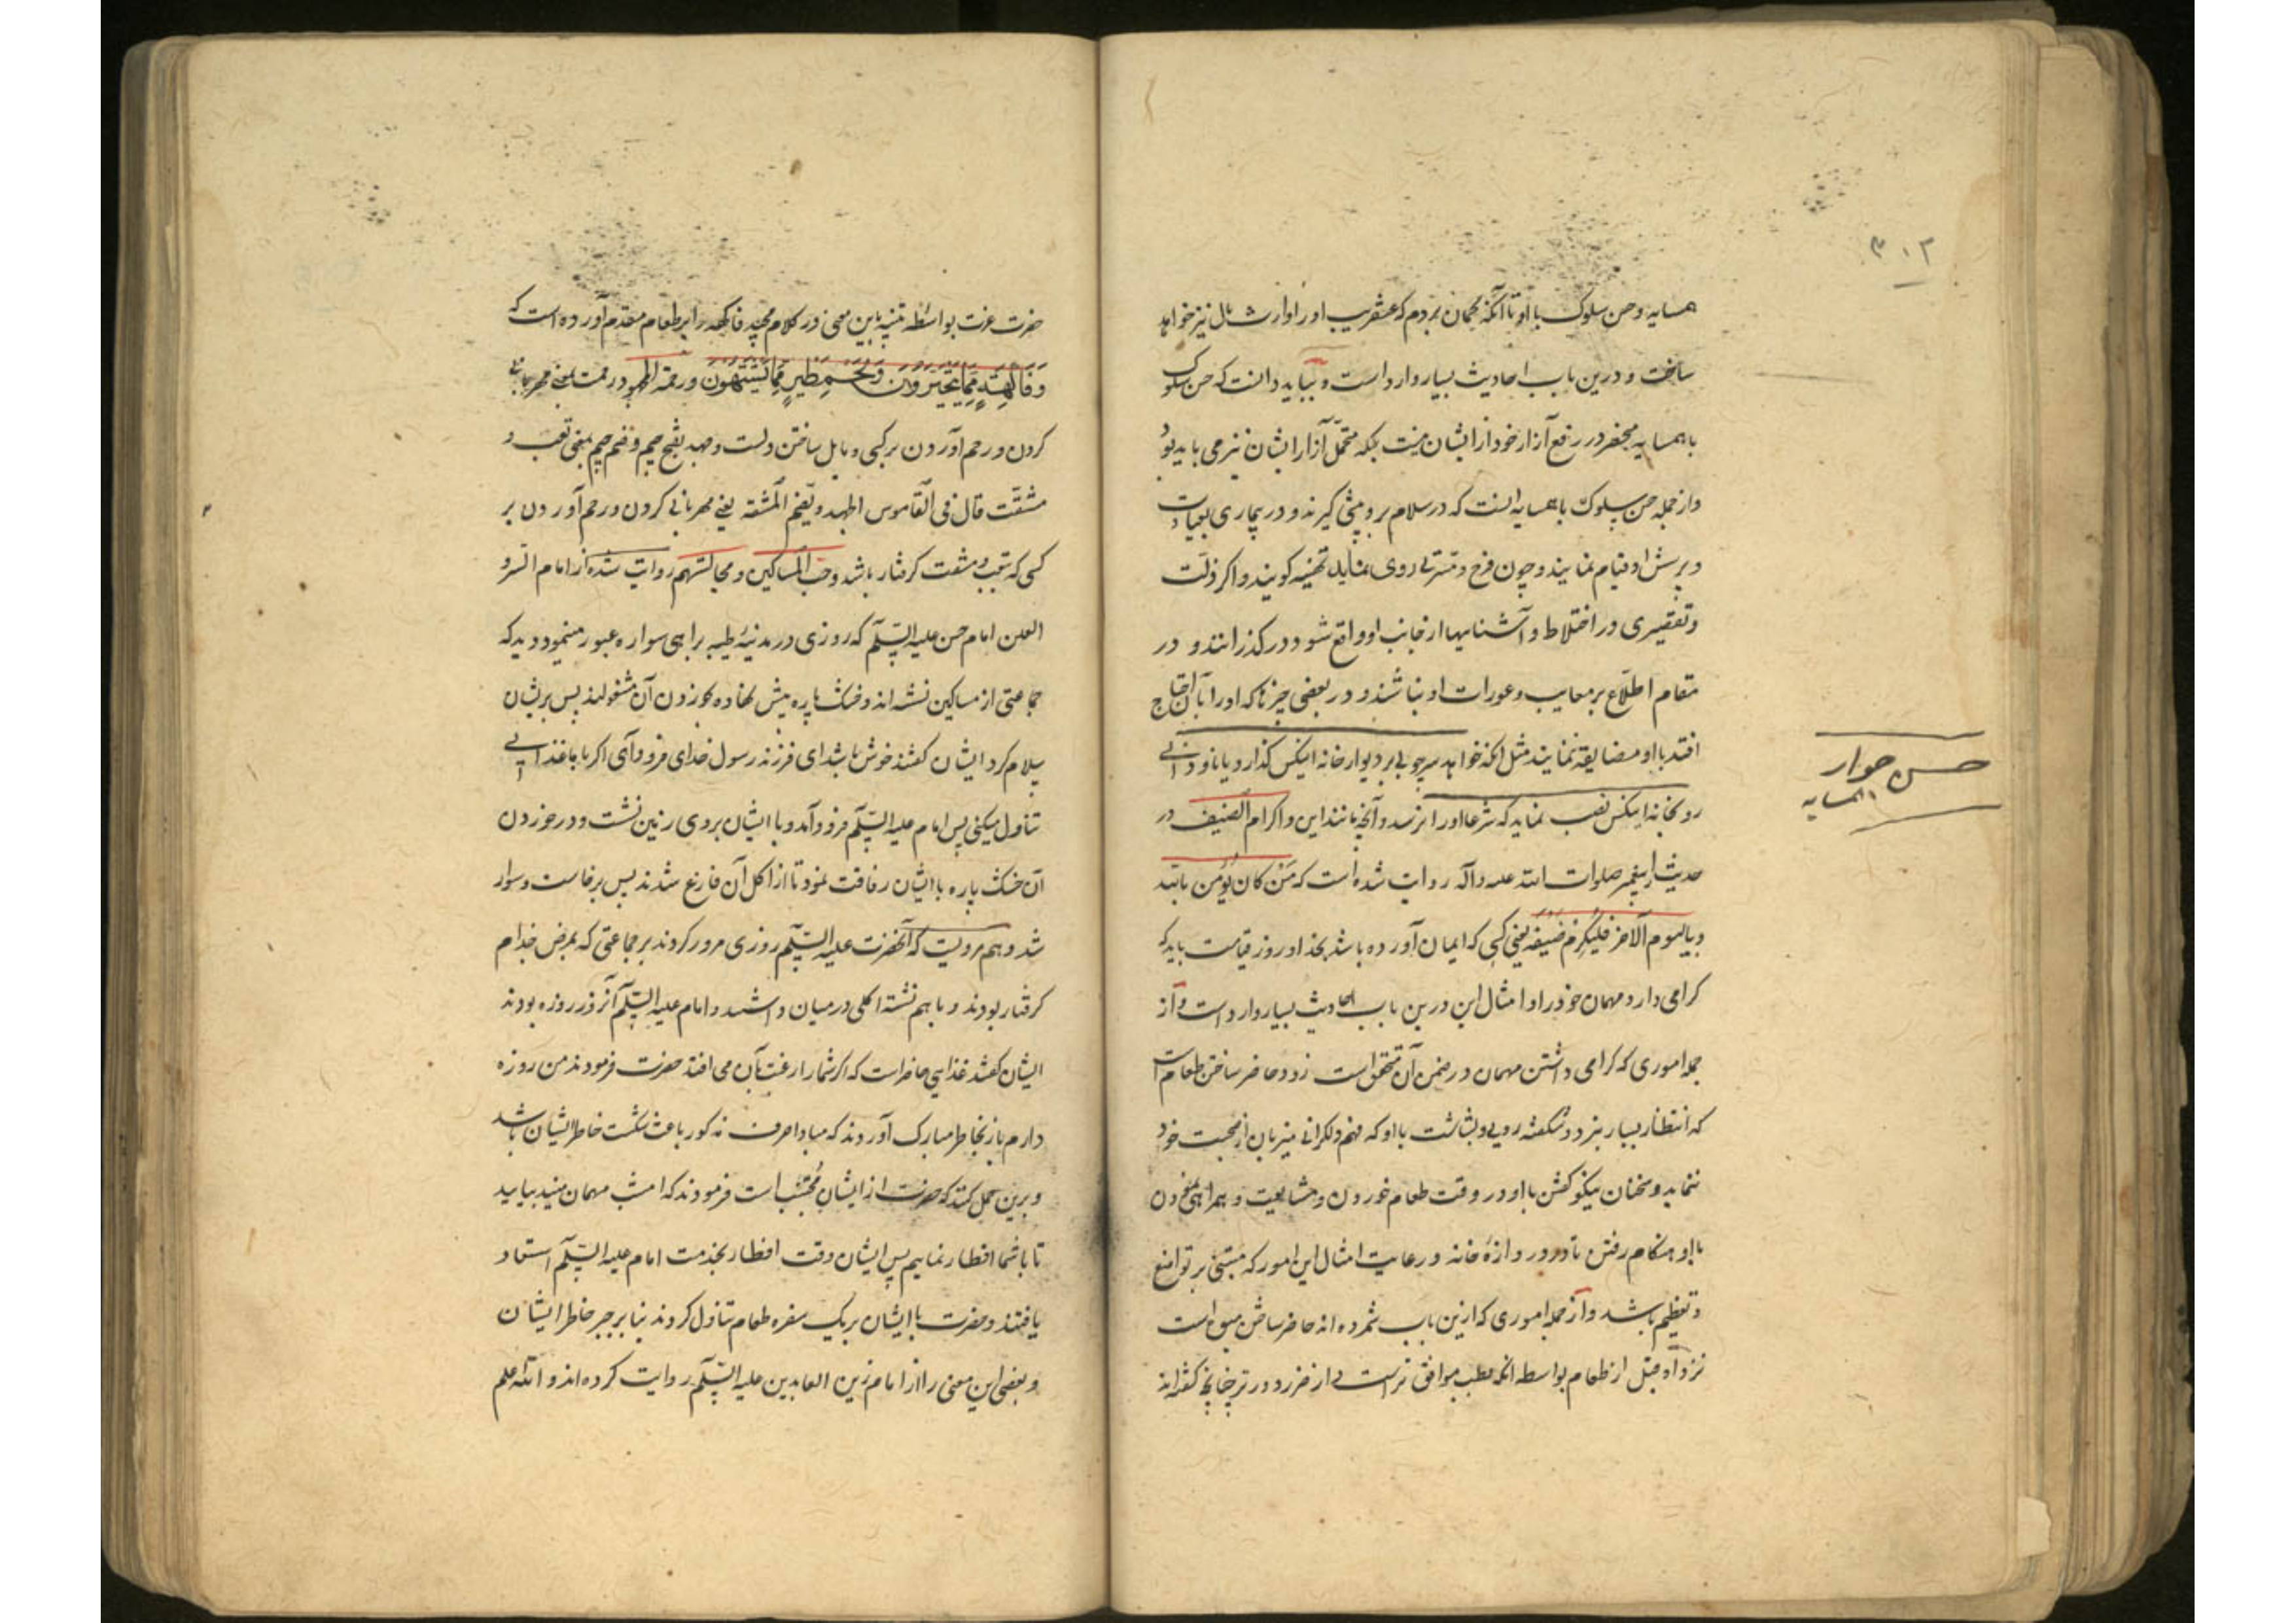 ۳۰۲
همسایه و حسن سلوک با او تا آنکه گمان بردم که عنقریب او را وارث مال نیز خواهد
ساخت و درین باب احادیث بسیار وارد است و بباید دانست که حسن سلوک
با همسایه منحصر در رفع آزار خود از ایشان نیست بلکه متحمل آزار ایشان نیز می باید بود
و از جمله حسن سلوک با همسایه آنست که در سلام برو پیشی گیرند و در بیماری بعیادت
و پرسش او قیام نمایند و چون فرح و مسرتی روی نماید تهنیه گویند و اگر زلت
و تقصیری در اختلاط و آشناییها از جانب او واقع شود در گذرانند و در
مقام اطلاع بر معایب و عورات او نباشند و در بعضی چیزها که او را بآن احتیاج
افتد با او مضایقه ننمایند مثل آنکه خواهد سر چوبی بر دیوار خانه اینکس گذارد یا ناودانی
رو بخانه اینکس نصب نماید که شرعا او را نرسد و آنچه مانند این و اکرام الضیف در
حدیث از پیغمبر صلوات الله علیه و آله روایت شده است که من کان یؤمن بالله
و بالیوم الآخر فلیکرم ضیفه یعنی کسی که ایمان آورده باشد بخدا و روز قیامت باید که
گرامی دارد مهمان خود را و امثال این درین باب احادیث بسیار وارد است و از
جمله اموری که گرامی داشتن مهمان در ضمن آن متحقق است زود حاضر ساختن طعام است
که انتظار بسیار نبرد و شکفته رویی و بشاشت با او که فهم دلگرانی میزبان از صحبت خود
ننماید و سخنان نیکو گفتن با او در وقت طعام خوردن و مشایعت و همراهی نمودن
با او هنگام رفتن تا در دروازهٔ خانه و رعایت امثال این امور که مبتنی بر تواضع
و تعظیم باشد و از جمله اموری که ازین باب شمرده اند حاضر ساختن میوه است
نزد او قبل از طعام بواسطه آنکه بطب موافق تر است و از ضرر دورتر چنانچه گفته اند
حسن جوار
همسایه
حضرت عزت بواسطه تنبیه باین معنی در کلام مجید فاکهه را بر طعام مقدم آورده است که
وَفَاكِهَةٍ مِمَّا يَتَخَيَّرُونَ وَلَحْمِ طَيْرٍ مِمَّا يَشْتَهُونَ و رحمة المجهود رحمت یعنی مهربانی
کردن و رحم آوردن بر کسی و مایل ساختن دلست و جهد بفتح جیم و ضم جیم بمعنی تعب و
مشقت قال فی القاموس الجهد و یضم المشقه یعنی مهربانی کردن و رحم آوردن بر
کسی که بتعب و مشقت گرفتار باشد و حب المساکین و مجالستهم روایت شده از امام السر و
العلن امام حسن علیه السلام که روزی در مدینهٔ طیبه براهی سواره عبور مینمود دید که
جماعتی از مساکین نشسته اند و خشک پاره پیش نهاده بخوردن آن مشغولند پس بریشان
سلام کرد ایشان گفتند خوش باشد ای فرزند رسول خدای فرود آی اگر با ما غذایی
تناول میکنی پس امام علیه السلام فرود آمد و با ایشان بر روی زمین نشست و در خوردن
آن خشک پاره با ایشان رفاقت نمود تا از اکل آن فارغ شدند پس برخاست و سوار
شد و هم مرویست که آنحضرت علیه السلام روزی مرور کردند بر جماعتی که بمرض جذام
گرفتار بودند و با هم نشسته اکلی در میان داشتند و امام علیه السلام آنروز روزه بودند
ایشان گفتند غذایی حاضر است که اگر شما را رغبت بآن می افتد حضرت فرمودند من روزه
دارم باز بخاطر مبارک آوردند که مبادا حرف مذکور باعث شکست خاطر ایشان باشد
و برین حمل کنند که حضرت از ایشان مجتنب است فرمودند که امشب مهمان منید بیایید
تا با شما افطار نمایم پس ایشان وقت افطار بخدمت امام علیه السلام استسعاد
یافتند و حضرت با ایشان بر یک سفره طعام تناول کردند بنا بر جبر خاطر ایشان
و بعضی این معنی را از امام زین العابدین علیه السلام روایت کرده اند و الله اعلم